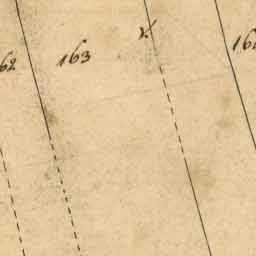 62
163
K
16